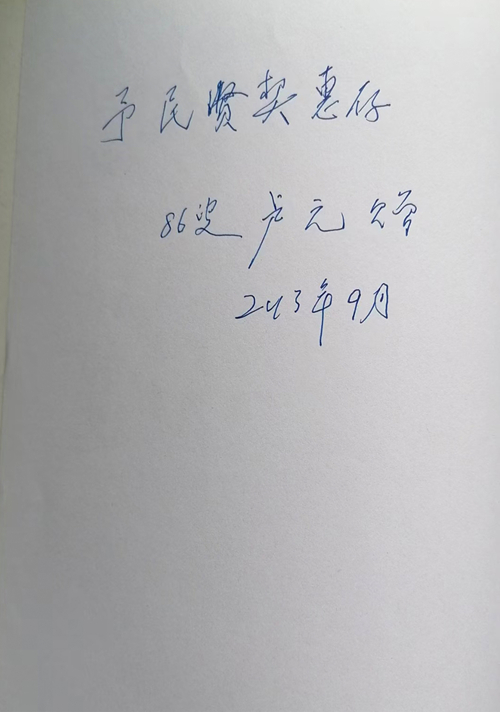 予民贤契惠存
86叟 卢元 赠
2013年9月